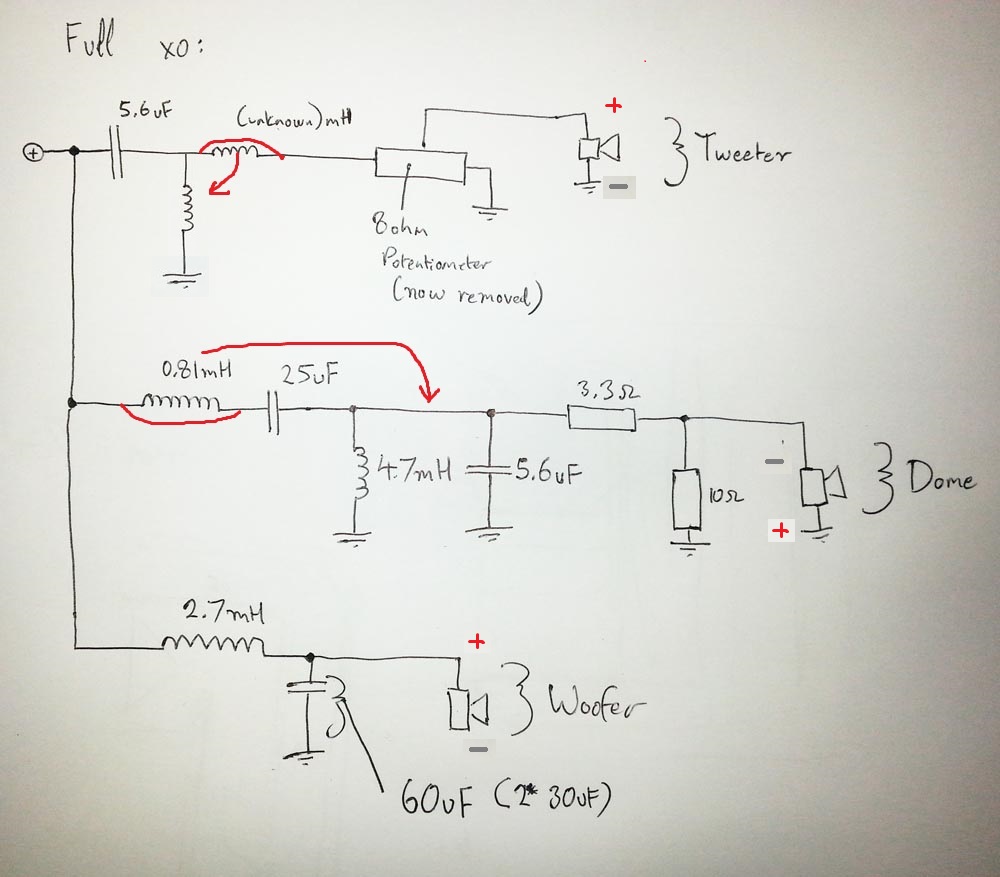 Full xo:
5.6uF
(unknown)mH
+
+
-
Tweeter
8ohm
Potentiometer
(now removed)
0.81mH
25uF
3.3Ω
4.7mH
5.6uF
10Ω
-
+
Dome
2.7mH
+
-
Woofer
60uF (2* 30uF)